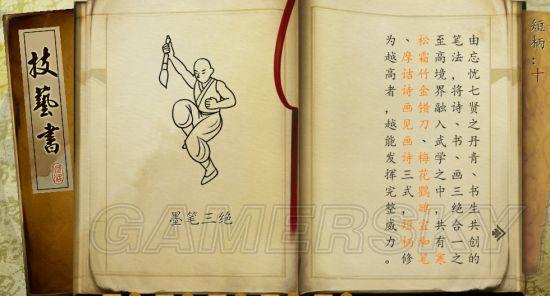 技藝書
墨笔三绝
短柄：十
由忘忧七贤之丹青、书生共创的
笔法，将诗、书、画三绝合一之
至高境界融入武学之中，共有寒
松霜竹金错刀、梅花鹦鹉宣和笔
、摩诘诗画见画诗三式，短柄修
为越高者，越能发挥完整威力。
GAMERSKY